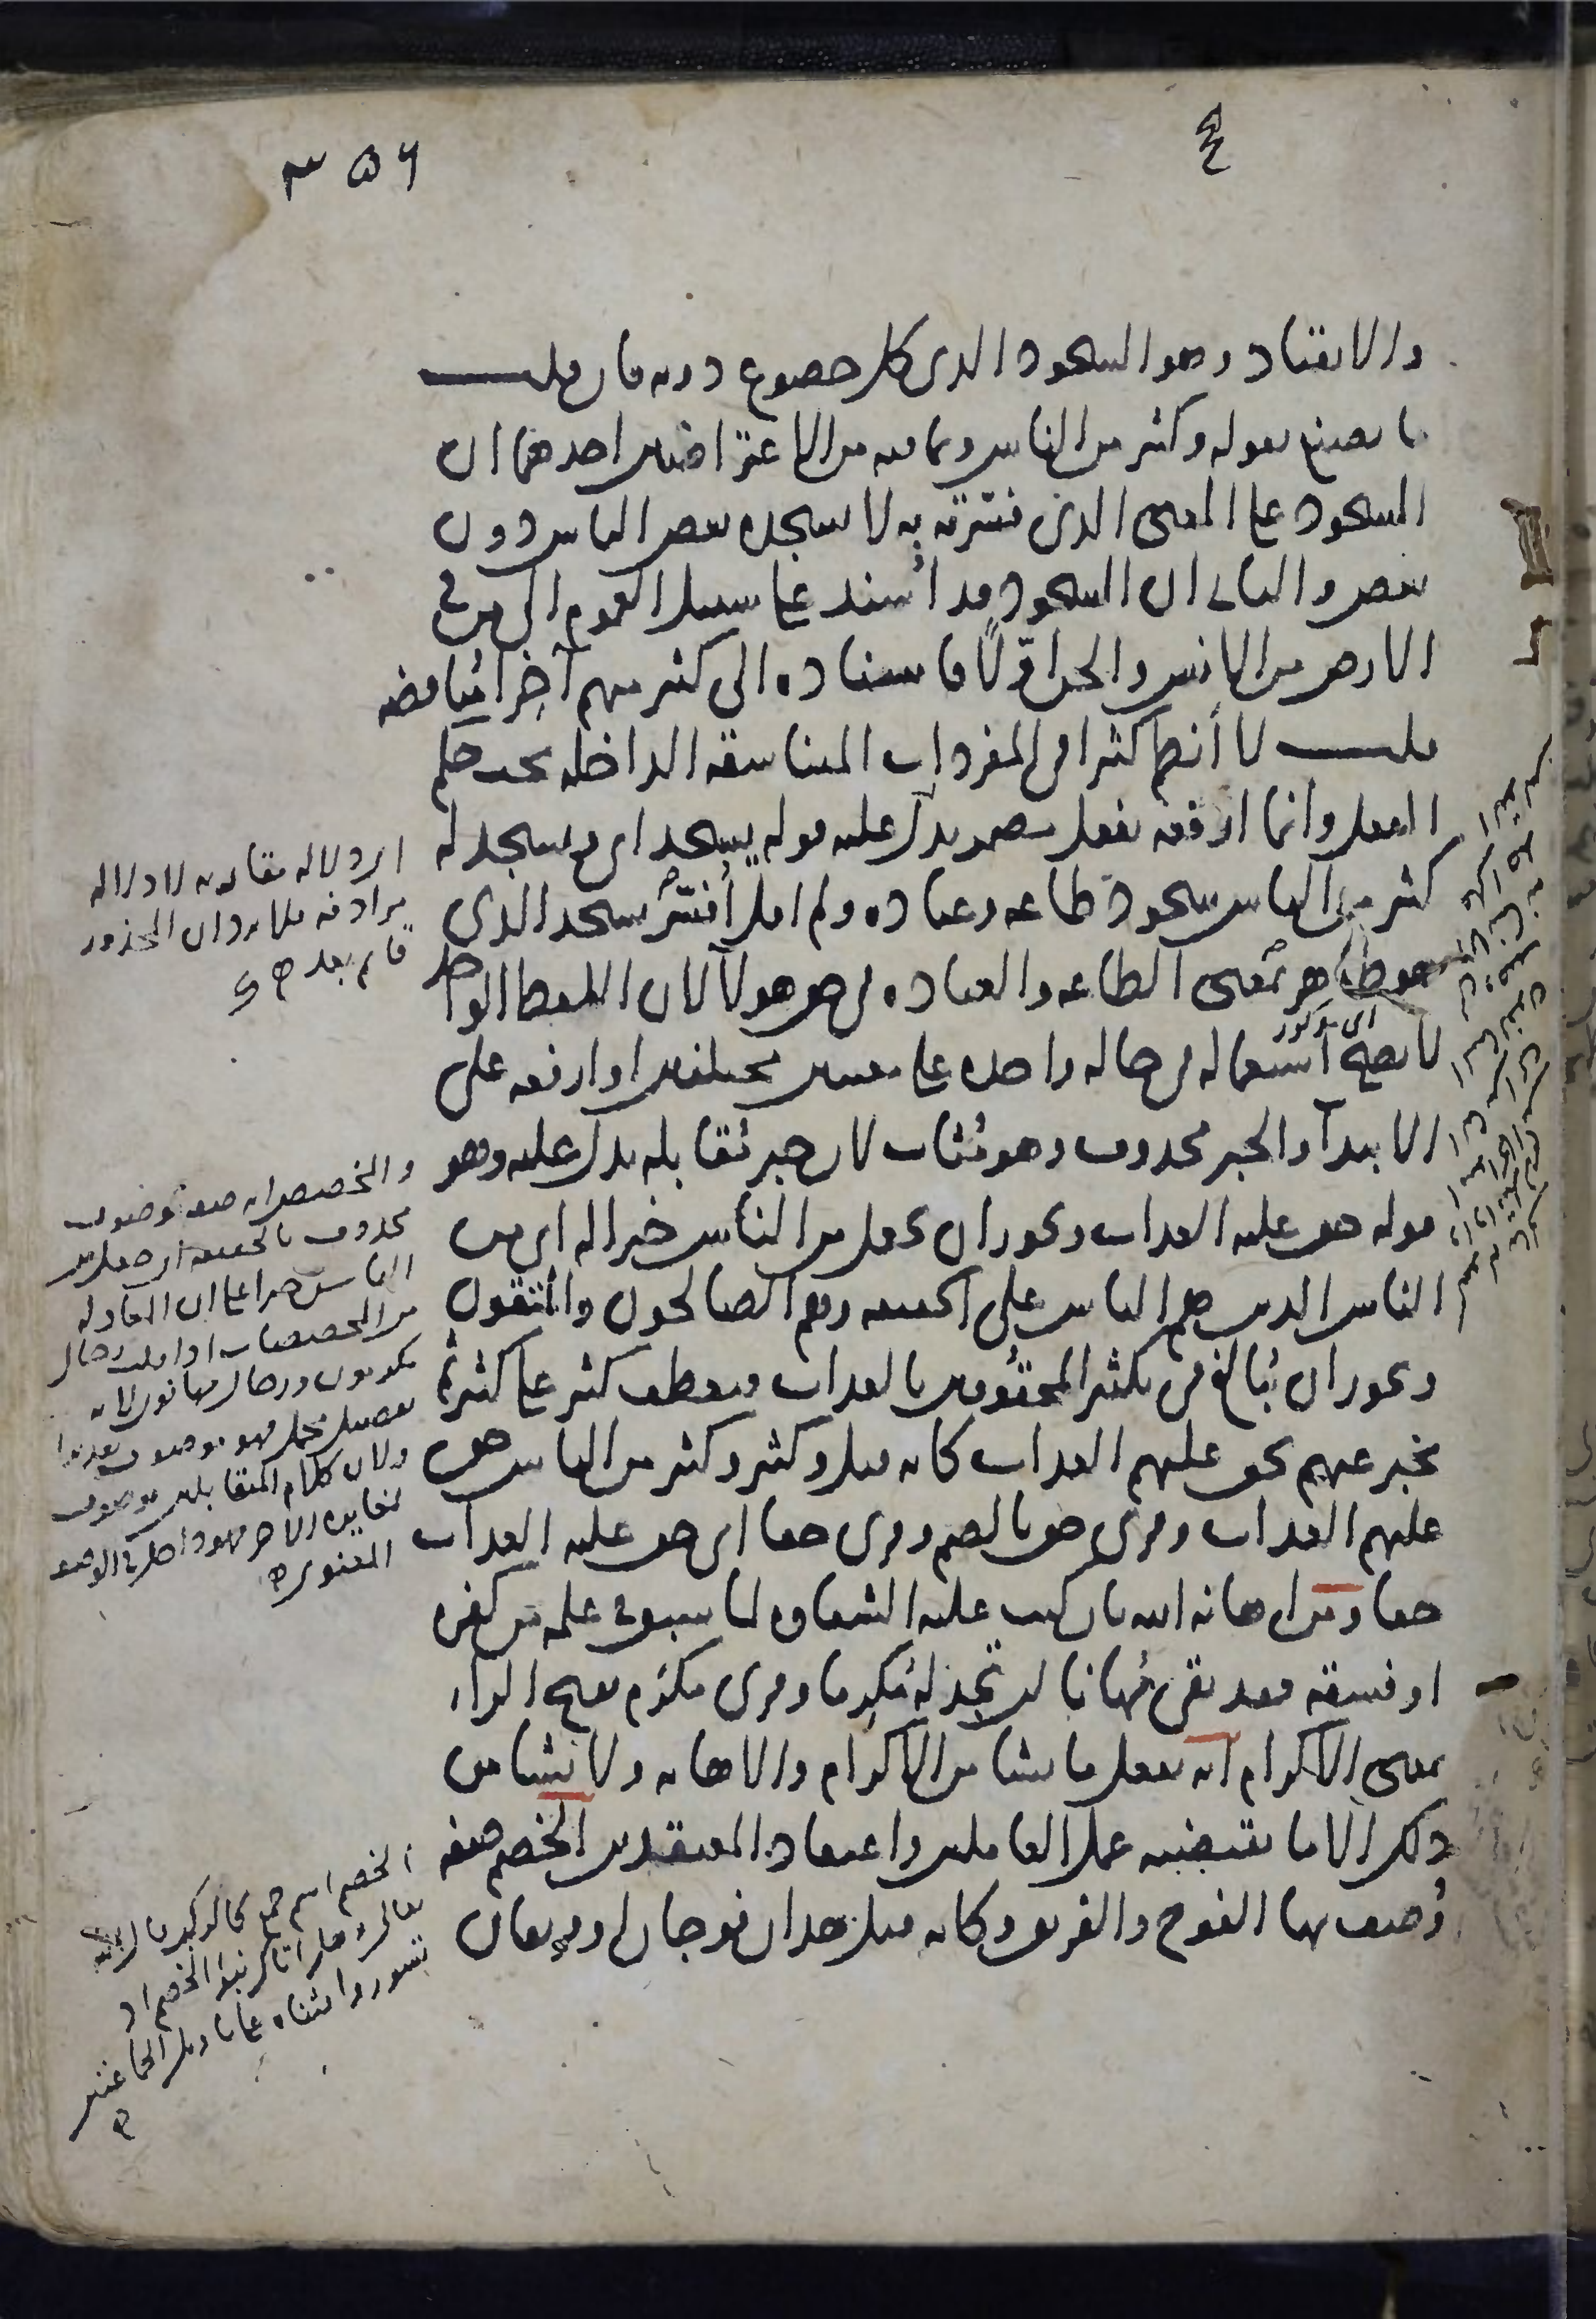 ٣٥٦
والانقياد وهو السجود الذي كل خضوع دونه فان قلت
ما تصنع بقوله وكثير من الناس وبما فيه من الاعتراضين احدهما ان
السجود على المعنى الذي فسرته به لا يسجده بعض الناس دون
بعض والثاني ان السجود قد أسند على سبيل العموم الى من في
الارض من الانس والجن اوّلًا فاسناده الى كثير منهم آخِرا مُناقضه
قلت لا أنظم كثيرا في المفردات المتناسقة الداخلة تحت حكم
الفعل وانما ارفعه بفعل مضمر يدل عليه قوله يسجد اي ويسجد له
كثير من الناس سجود طاعة وعبادة ولم اقل أُفسّر يسجد الذي
هو ظاهر بمعنى الطاعة والعبادة في حق هولآ لان اللفظ الواحد
اي مذكور
لا يصح استعماله في حالة واحدة على معنيين مختلفين او ارفعه على
الابتدآ والخبر محذوف وهو مُثاب لان خبر مُقابله يدل عليه وهو
قوله حق عليه العذاب ويجوز ان يجعل من الناس خبرا له اي من
الناس الذين هم الناس على الحقيقة وهم الصالحون والمتقون
ويجوز ان يُبالغ في تكثير المحقُوقين بالعذاب فيعطف كثير على كثير ثم
يخبر عنهم بحق عليهم العذاب كانه قيل وكثير وكثير من الناس حق
عليهم العذاب وقرئ حق بالضم وقرئ حقا اي حق عليه العذاب
حقا ومن اهانه الله بان كتب عليه الشقاوة لما سبق في علمه من كفره
او فسقه فقد بقي مُهانا لن تجد له مُكرِما وقرئ مكرَم بفتح الراء
بمعنى الاكرام انه يفعل ما يشا من الاكرام والاهانة ولا يشا من
ذلك الا ما يقتضيه عمل العاملين واعتقاد المعتقدين الخصم صفة
وُصف بها الفوج والفريق وكانه قيل هذان فوجان او فريقان
اي دلالة مقابلة لا دلالة
مرادفة فلا يرد ان المحذور
قائم بعد
والتخصيص انه صفة موصوف
محذوف
الناس
من المخصصات اذا قلت رجال
مكرمون ورجال مهانون لانه
تفصيل مجمل فهو موصوف تقديرا
ولان كلام المتقابلين موصوف
بمغايرة الآخر فهو داخل في الوصف
المعنوي
الخصم اسم جمع كالركب قال الله
تعالى وهل اتاك نبؤا الخصم اذ
تسوروا